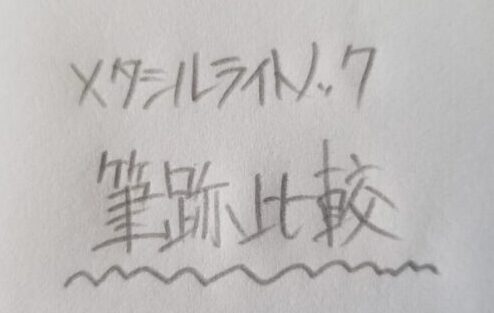 メタシルライトノック
筆跡比較